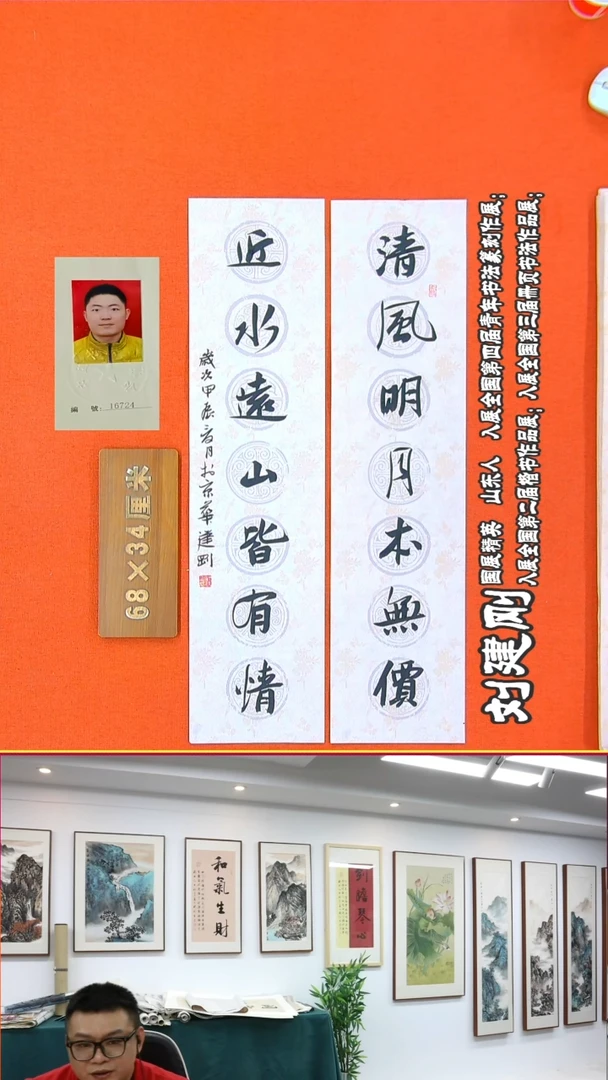 清風明月本無價
近水遠山皆有情
歲次甲辰春月於京華建剛
編 號: 16724
68×34厘米
刘建刚
国展精英 山东人 入展全国第四届青年书法篆刻作展;
入展全国第二届楷书作品展; 入展全国第三届册页书法作品展;
和氣生財
劍膽琴心